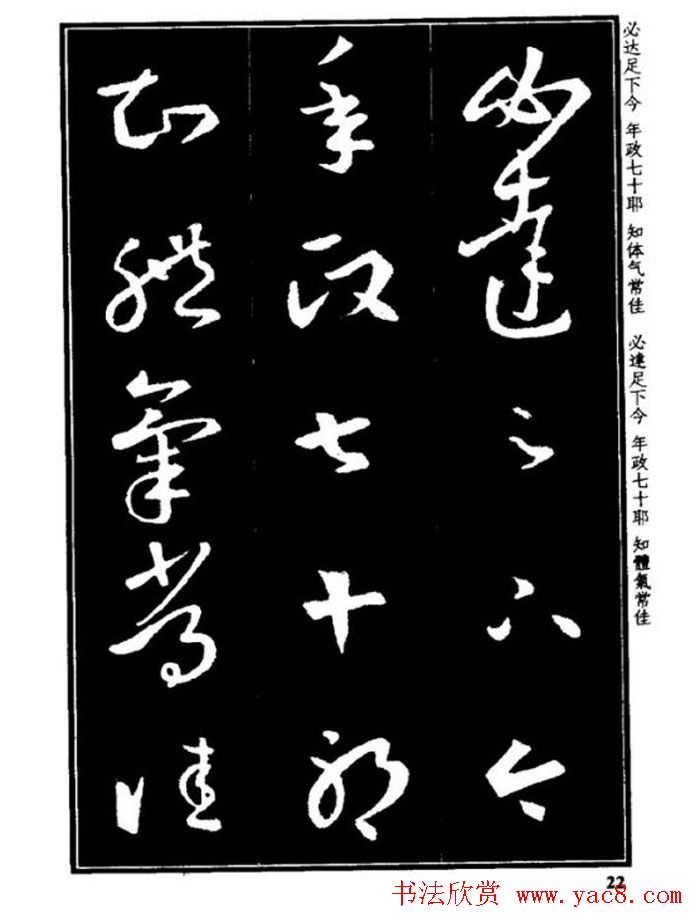 必達足下今
年政七十耶
知體氣常佳
必达足下今 年政七十耶 知体气常佳 必達足下今 年政七十耶 知體氣常佳
22
书法欣赏 www.yac8.com